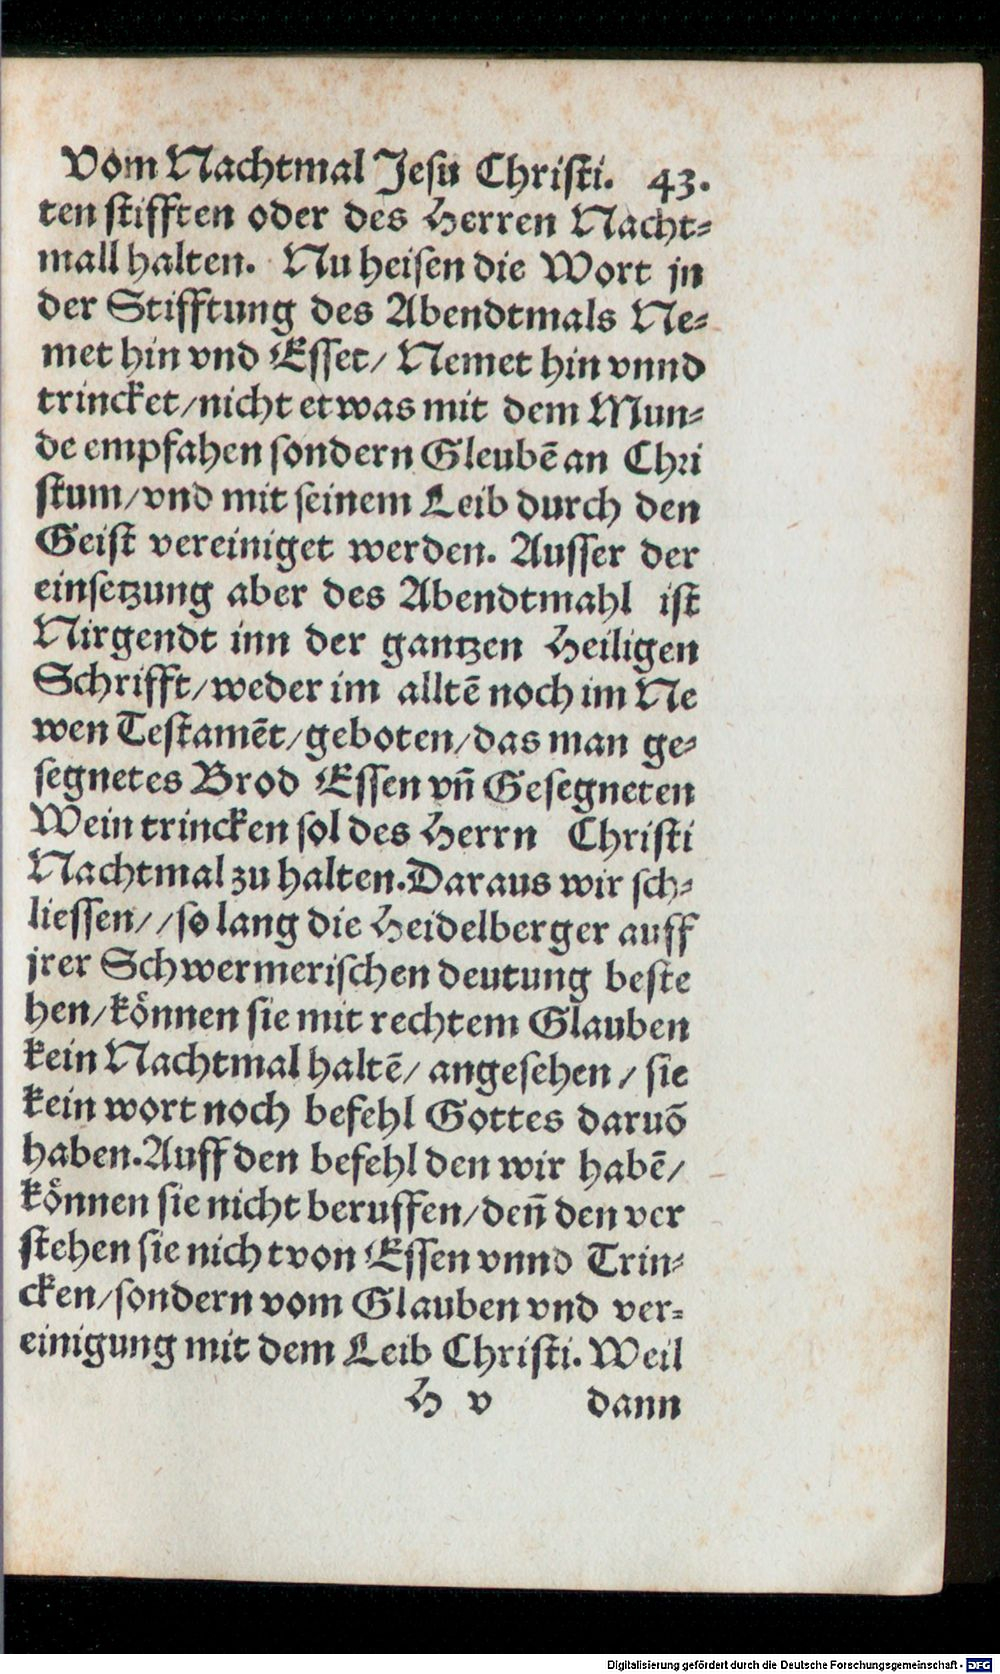 Vom Nachtmal Jesu Christi. 43.
ten stifften oder des Herren Nacht⸗
mall halten. Nu heisen die Wort jn
der Stifftung des Abendtmals Ne⸗
met hin vnd Esset/ Nemet hin vnnd
trincket/nicht etwas mit dem Mun⸗
de empfahen sondern Gleubē an Chri
stum/vnd mit seinem Leib durch den
Geist vereiniget werden. Ausser der
einsetzung aber des Abendtmahl ist
Nirgendt inn der gantzen Heiligen
Schrifft/weder im alltē noch im Ne
wen Testamēt/geboten/das man ge⸗
segnetes Brod Essen vn̄ Gesegneten
Wein trincken sol des Herrn Christi
Nachtmal zu halten.Daraus wir sch⸗
liessen//so lang die Heidelberger auff
jrer Schwermerischen deutung beste
hen/können sie mit rechtem Glauben
kein Nachtmal haltē/ angesehen/ sie
kein wort noch befehl Gottes daruō
haben.Auff den befehl den wir habē/
können sie nicht beruffen/den̄ den ver
stehen sie nicht von Essen vnnd Trin⸗
cken/sondern vom Glauben vnd ver⸗
einigung mit dem Leib Christi. Weil
H v dann
Digitalisierung gefördert durch die Deutsche Forschungsgemeinschaft - DFG